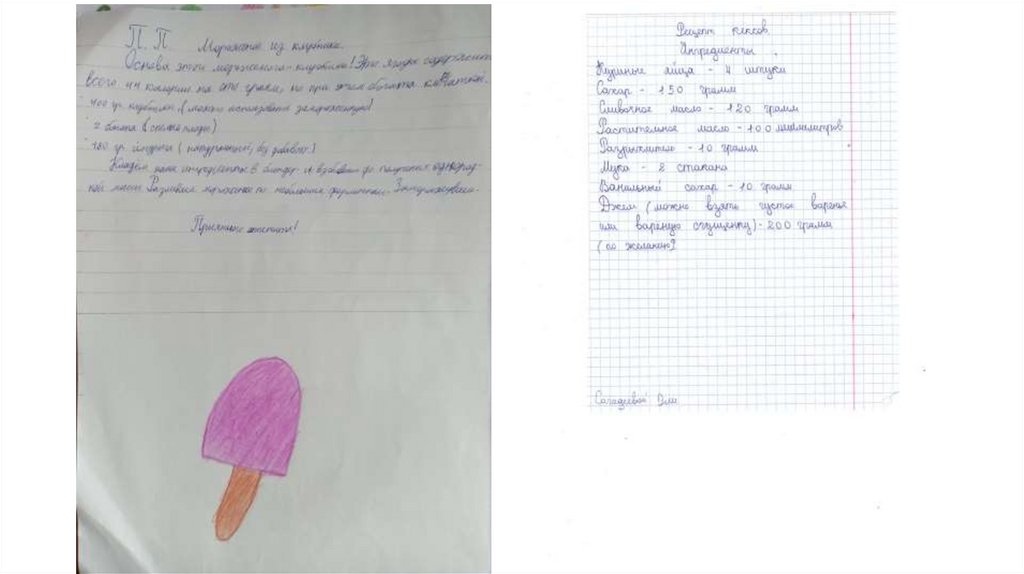 П. П. Мороженое из клубники.
Основа этого мороженого - клубника! Эта ягода содержит
всего 44 калории на 100 грамм, но при этом богата клетчаткой.
400 гр клубники (можно использовать замороженную)
2 банана (спелые плоды)
180 гр йогурта (натуральный, без добавок)
Кладём наши ингредиенты в блендер и взбиваем до получения однород-
ной массы. Разливаем мороженое по небольшим формочкам. Замораживаем.
Приятного аппетита!
Рецепт кексов.
Ингредиенты.
Куриные яйца - 4 штуки
Сахар - 150 грамм
Сливочное масло - 120 грамм
Растительное масло - 100 миллилитров
Разрыхлитель - 10 грамм
Мука - 2 стакана
Ванильный сахар - 10 грамм
Джем (можно взять густое варенье
или вареную сгущенку) - 200 грамм
(по желанию)